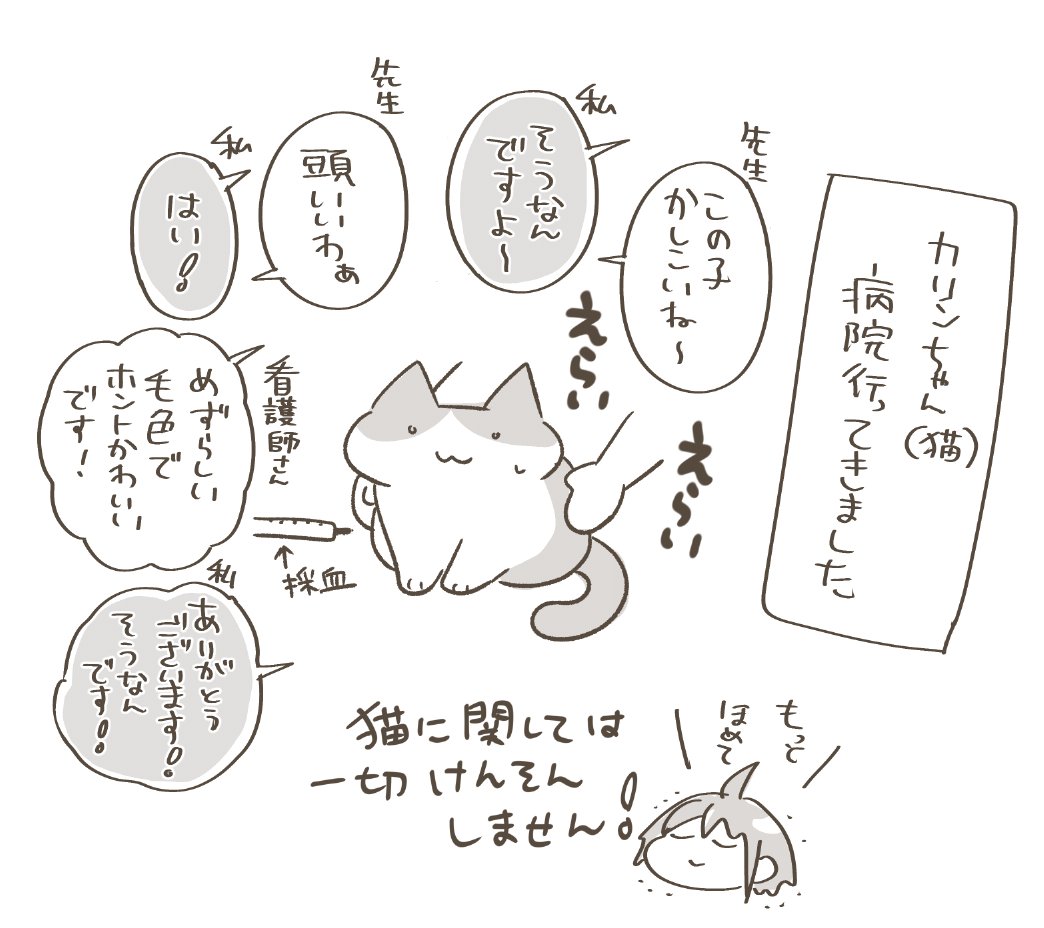 カリンちゃん(猫)
病院行ってきました
先生
この子
かしこいね〜
私
そうなん
ですよ〜
先生
頭いいわぁ
私
はい!
えらい
えらい
看護師さん
めずらしい
毛色で
ホントかわいい
です!
↑
採血
私
ありがとう
ございます!
そうなん
です!
もっと
ほめて
猫に関しては
一切けんそん
しません!